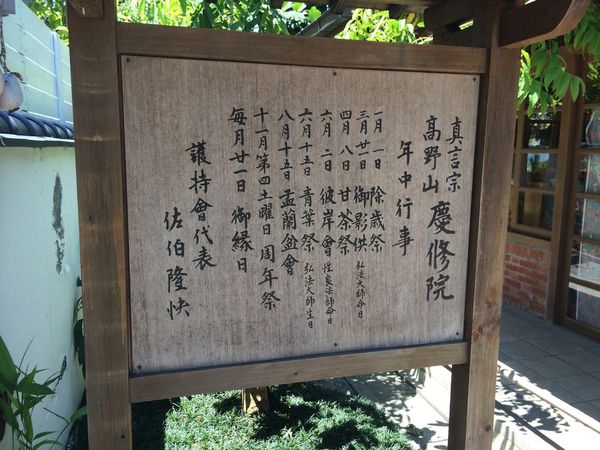 真言宗
高野山 慶修院
年中行事
一月一日 除歳祭
三月廿一日 御影供 弘法大師命日
四月八日 甘茶祭
六月二日 彼岸會 性良法師命日
六月十五日 青葉祭 弘法大師生日
八月十五日 盂蘭盆會
十一月第四土曜日 周年祭
毎月廿一日 御縁日
護持會代表
佐伯隆快